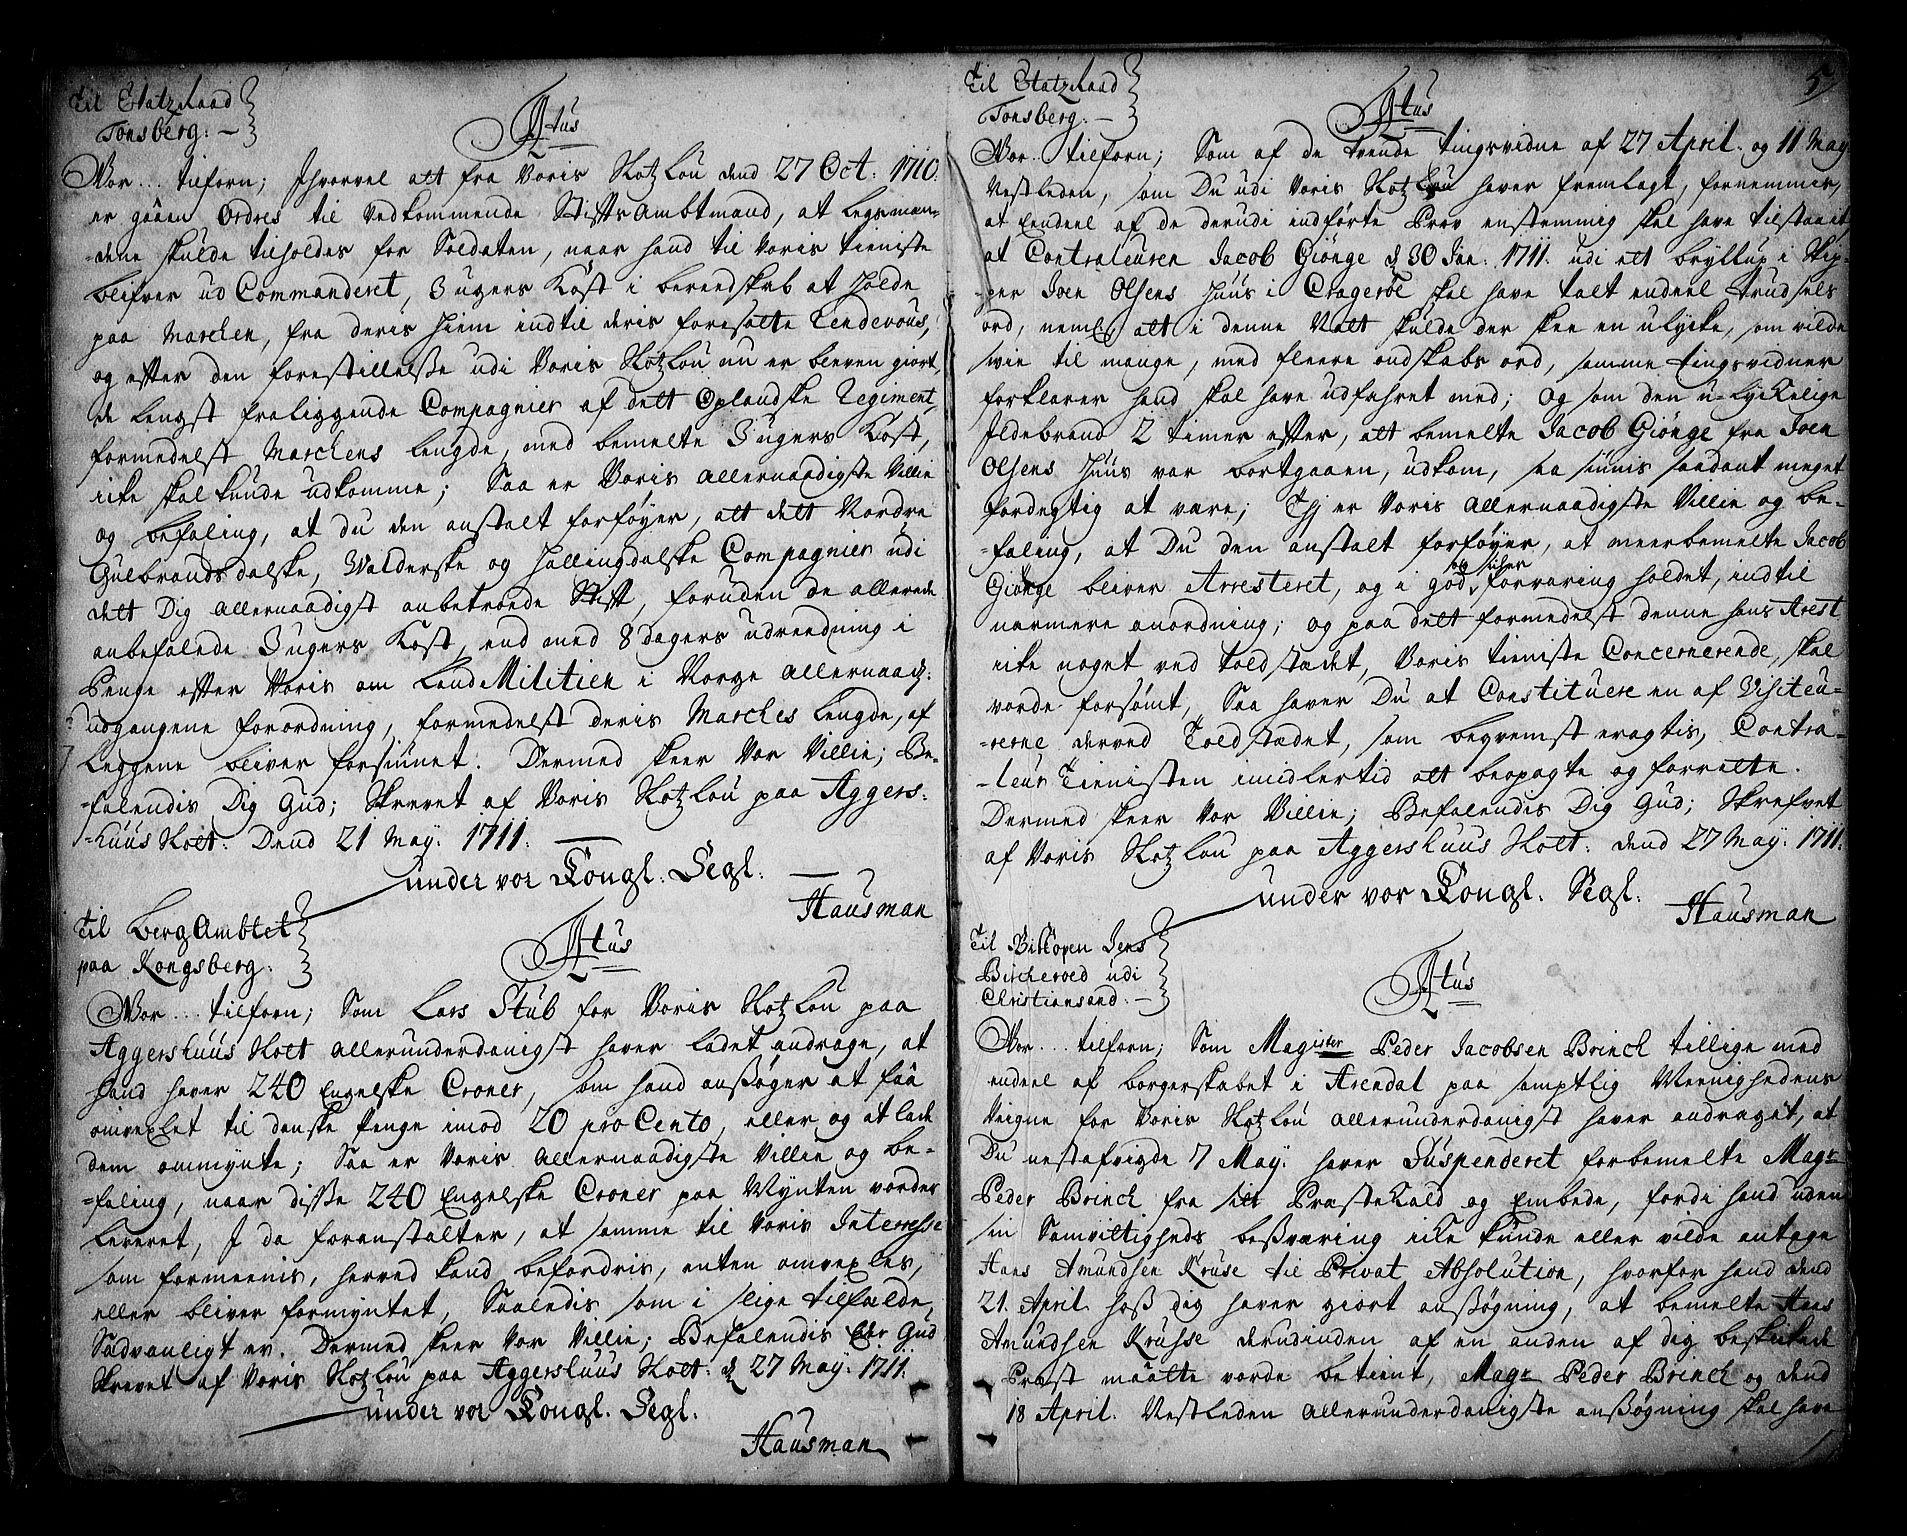 Til Etatzraad
Tonsberg: —
Fr 4tus
Vor... tilforn; Ihvorvel att fra Voris Slotzlou dend 27 Oct: 1710.
er gåaen Ordres til Vedkommende StiftsAmbtmand, at Legsmæn-
-dene skulde tilholdes for Soldaten, naar hand til Voris tieniste
blifver udCommanderet, 3 ugers Kost i bereedskab at holde
paa Marchen, fra deris hiem indtil deris foresatte Rendevous,
og efter den forestillelße udi Voris Slotzlou nu er bleven giort,
de lengst fraliggende Compagnier af dett Oplandske Regiment,
formedelst Marchens lengde, med bemelte 3 ugers Kost,
icke skal kunde udkomme; Saa er Voris allernaadigste Villie
og befaling, at du den anstalt forföyer, att dett Nordre
Gulbrandsdalske, Walderske og Hallingdalske Compagnier udi
dett Dig allernaadigst anbetroede Stift, foruden de allerede
anbefalede 3 ugers Kost, end med 8 dagers udreedning i
Penge efter Voris om LandMilitien i Norge allernaad:
udgangene forordning, formedelst deris Marches lengde, af
Leggene bliver forsiunet. Dermed skeer Vor Villie; Be-
-falendis Dig Gud; Skrevet af Voris Slotzlou paa Aggers-
-huus Slott. Dend 21 May. 1711.
under vor Kongl. Segl.
Hausman
Til BergAmbtet
paa Kongsberg.
Fr 4tus
Vor... tilforn; Som Lars Stub for Voris Slotzlou paa
Aggershuus Slott allerunderdanigst haver ladet andrage, at
hand haver 240 Engelske Croner, som hand anßöger at faa
omvexlet til danske Penge imod 20 pro Cento, eller og at lade
dem ommynte; Saa er Voris allernaadigste Villie og be-
-faling, naar diße 240 Engelske Croner paa Mynten vorder
Leveret, I da foranstalter, at samme til Voris Interesse
som formeenis, herved kand befordris, enten omvexles,
eller bliver formyntet, Saaledis som i slige tilfælde,
Sædvanligt er. Dermed skeer Vor Villie; Befalendis Eder Gud
Skrevet af Voris Slotzlou paa Aggershuus Slott: d 27 May: 1711.
under vor Kongl. Segl.
Hausman
Til Etatzraad
Tonsberg. —
Fr 4tus
Vor... tilforn; Som af de trende tingsvidne af 27 April. og 11 May
Nestleden, som Du udi Voris Slotzlou haver fremlagt, fornemmes,
at Eendeel af de derudi indförte Prov enstemmig skal have tilstaaet
at Contraleuren Jacob Giönge d 30 Jan: 1711. udi ett bryllup i Skip-
-per Joen Olsens Huus i Crageröe skal have talt endeel trudsels
ord, neml. att i denne Natt skulde der skee en ulycke, som vilde
svie til mange, med fleere ondskabs ord, samme tingsvidner
forklarer hand skal have udfahret med; Og som den u-lyckelige
Ildebrand 2 timer efter, att bemelte Jacob Giönge fra Joen
Olsens Huus var bortgaaen, udkom, saa siunis saadant meget
fordegtig at være; Thj er Voris allernaadigste Villie og be-
-faling, at Du den anstalt forföyer, at meerbemelte Jacob
Giönge bliver Arresteret, og i god
og sicher
forvaring holdet, indtil
nærmere anordning; og paa dett formedelst denne hans Arest
icke noget ved toldstædet, Voris tieniste Concernerende, skal
vorde forsömt, Saa haver Du at Constituere en af Visiteu-
-rerne derved Toldstædet, som beqvemst eragtis, Contra-
-leur Tienisten imidlertid att beopagte og forrette.
Dermed skeer Vor Villie; Befalendis Dig Gud; Skrefvet
af Voris Slotzlou paa Aggershuus Slott. dend 27 May: 1711.
under vor Kongl. Segl.
Hausman
Til Biscopen Jens
Bircheroed udi
Christiansand. —
Fr 4tus
Vor... tilforn; Som Magister Peder Jacobsen Brinch tillige med
endeel af borgerskabet i Arendal paa samptlig Meenighedens
Veigne for Voris Slotzlou allerunderdanigst haver andraget, at
Du nestafvigde 7 May. haver Suspenderet forbemelte Magr
Peder Brinch fra sitt PræsteKald og Embede, fordi hand uden
sin Samvittigheds beßværing icke kunde eller vilde antage
Hans Amundsen Kruse til Privat Absolution, hvorfor hand dend
21. April hoß dig haver giort anßögning, at bemelte Hans
Amundsen Kruhse derudinden af en anden af dig beskikede
Præst maatte vorde betient, Magr Peder Brinch og dend
18 April. Nestleden allerunderdanigste anßögning skal have